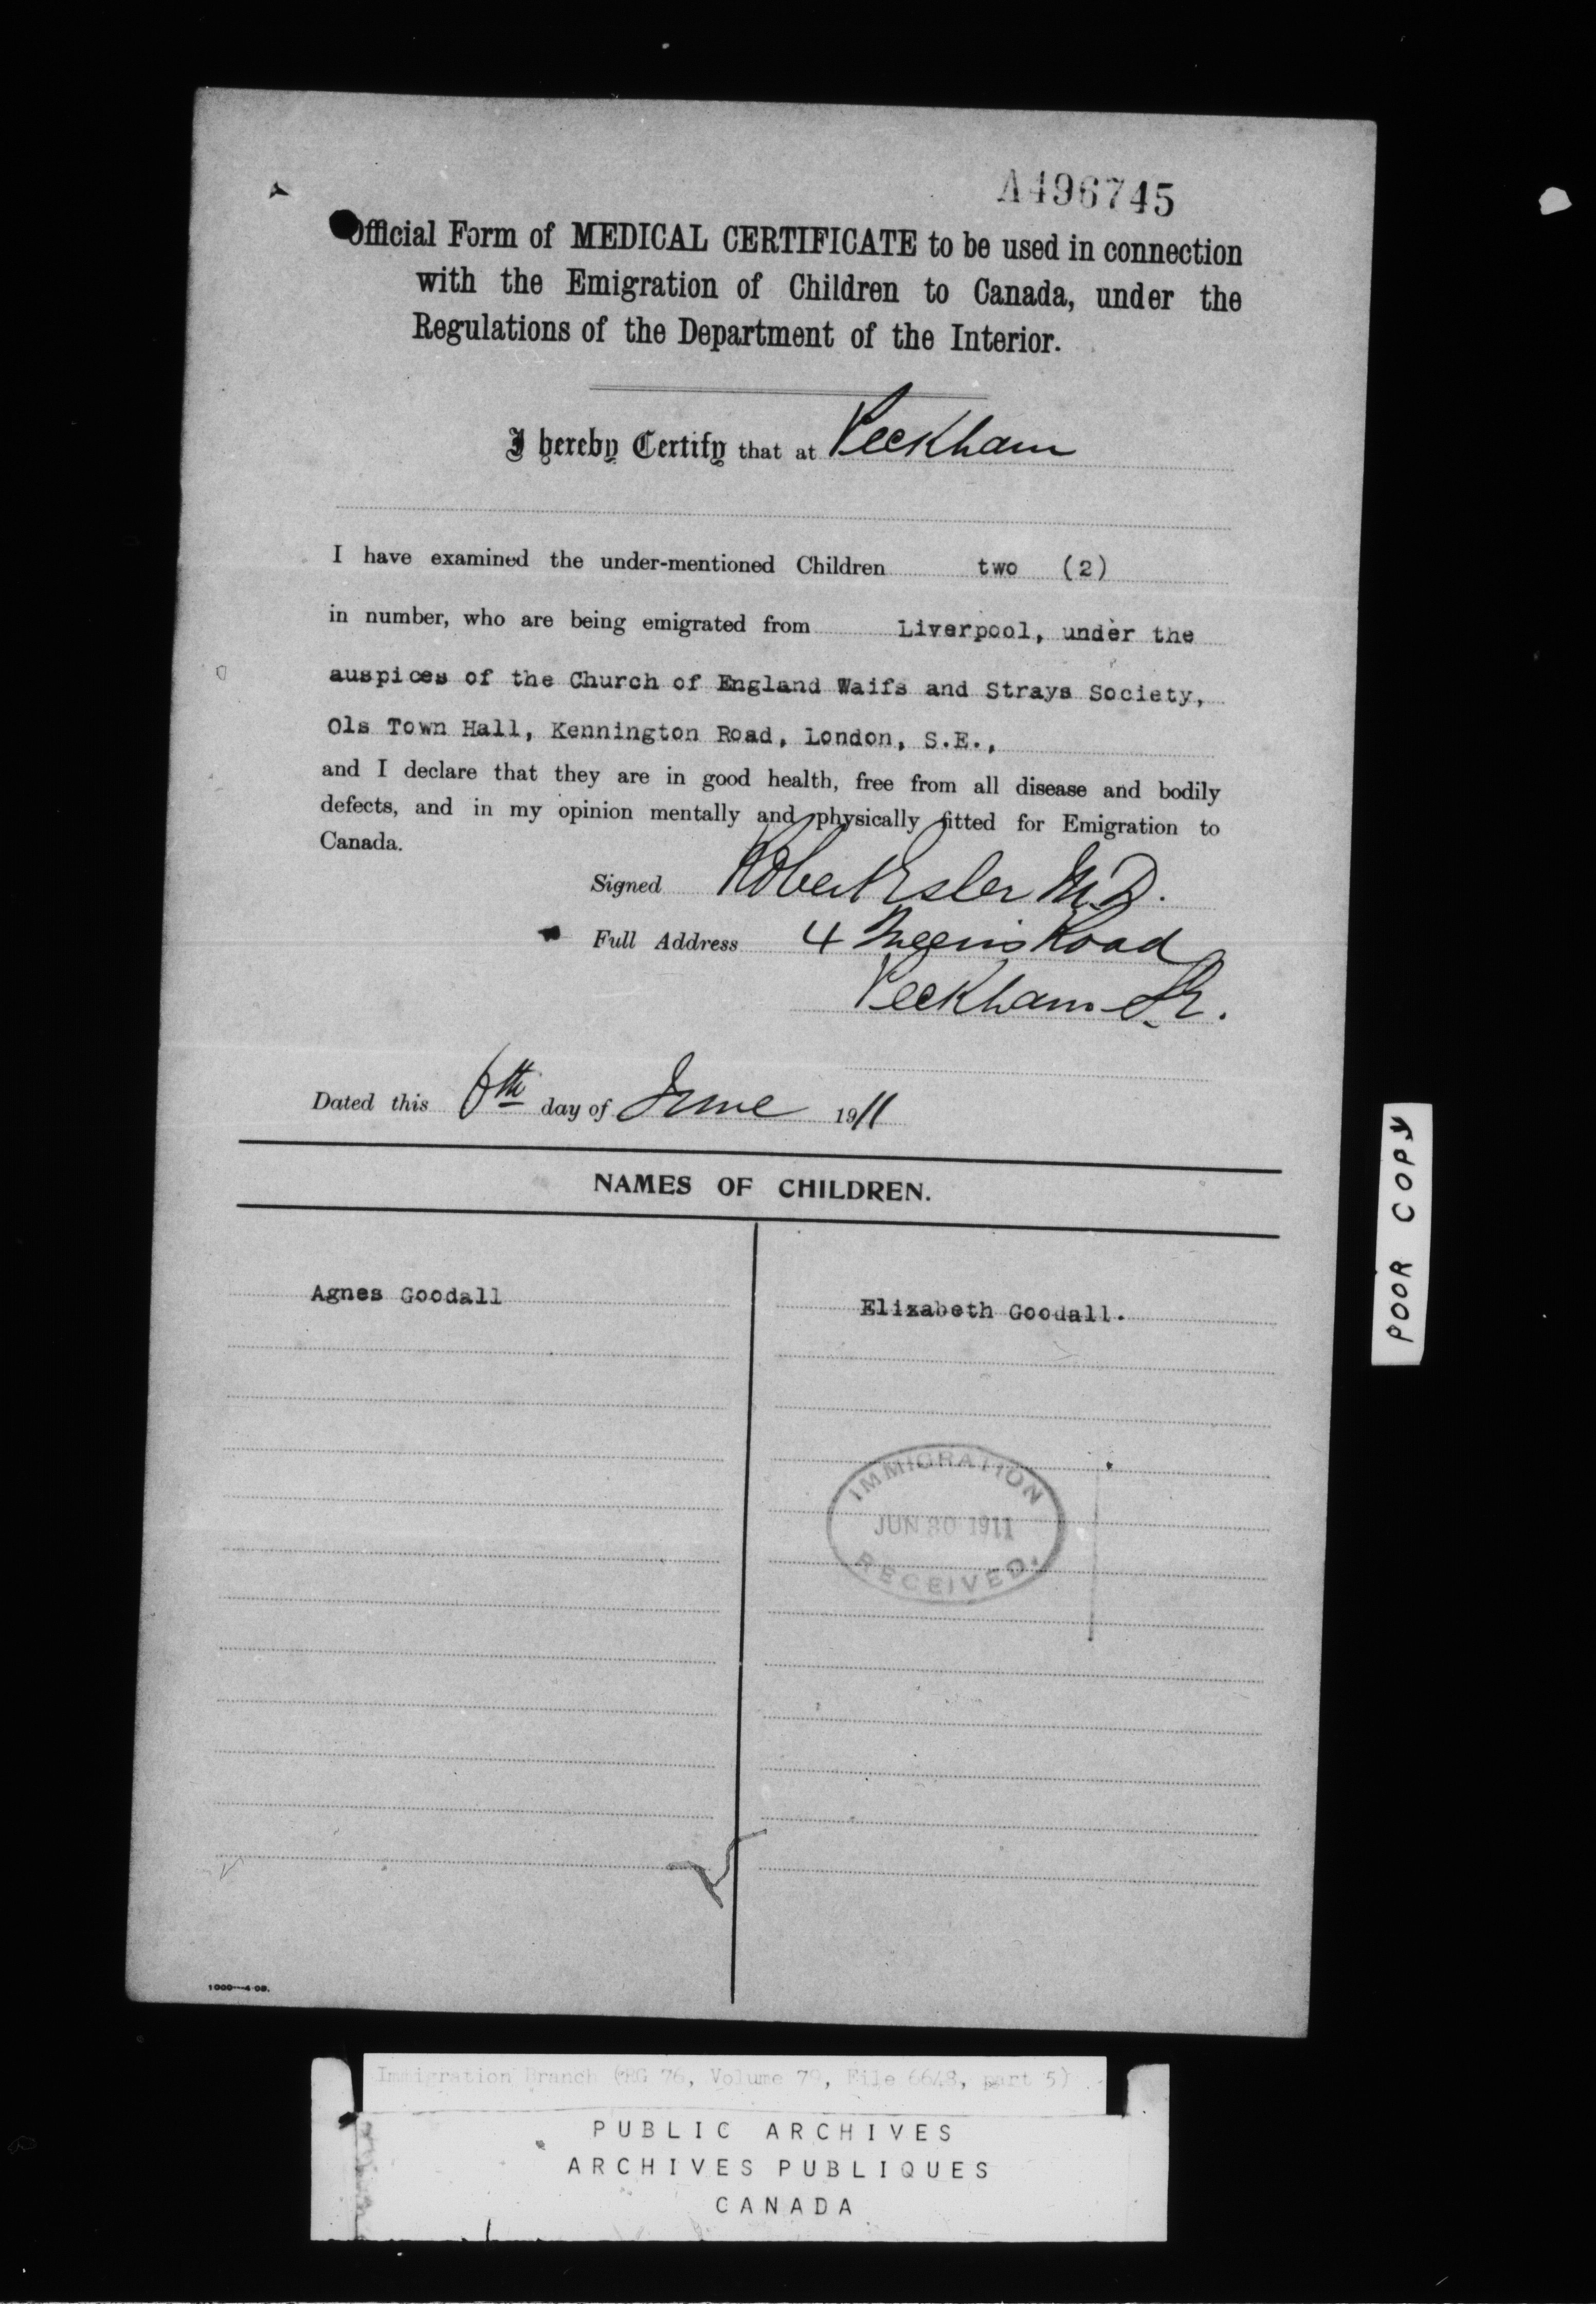 A496745
Official Form of MEDICAL CERTIFICATE to be used in connection
with the Emigration of Children to Canada, under the
Regulations of the Department of the Interior.
I hereby Certify that at Peckham
I have examined the under-mentioned Children two (2)
in number, who are being emigrated from Liverpool, under the
auspices of the Church of England Waifs and Strays Society,
Ols Town Hall, Kennington Road, London, S.E.,
and I declare that they are in good health, free from all disease and bodily
defects, and in my opinion mentally and physically fitted for Emigration to
Canada.
Signed Robert Esler M.D.
Full Address 4 Queens Road
Peckham S.E.
Dated this 6th day of June 1911
NAMES OF CHILDREN.
Agnes Goodall
Elizabeth Goodall.
IMMIGRATION
JUN 30 1911
RECEIVED.
1000—4-08.
POOR COPY
Immigration Branch (RG 76, Volume 79, File 6648, part 5)
PUBLIC ARCHIVES
ARCHIVES PUBLIQUES
CANADA